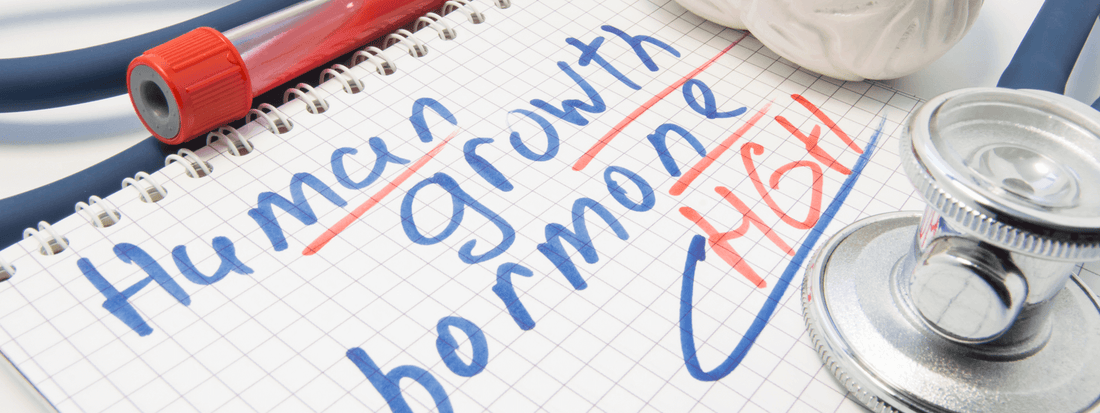 Human
growth
hormone
HGH